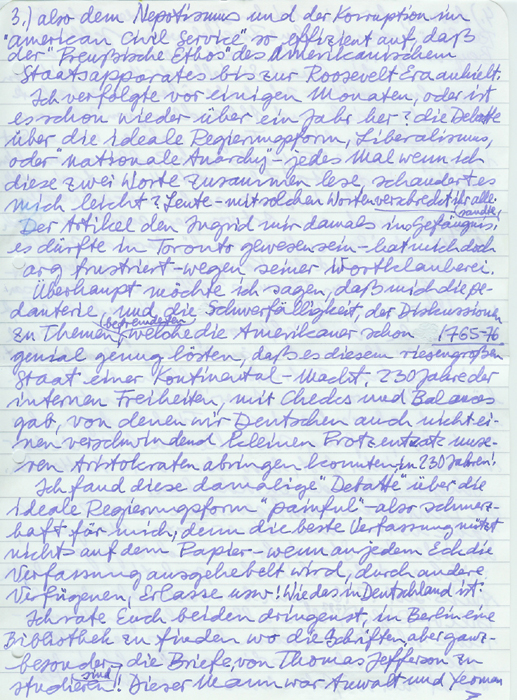 3.) also dem Nepotismus und der Korruption im
"american Civil Service" so effizient auf, daß
der "Preußische Ethos" des Amerikanischem
Staatsapparates bis zur Roosevelt Era anhielt.
Ich verfolgte vor einigen Monaten, oder ist
es schon wieder über ein Jahr her? die Debatte
über die ideale Regierungsform, Liberalismus,
oder "nationale Anarchy" – jedes Mal wenn ich
diese zwei Worte zusammen lese, schaudert es
mich leicht? Leute – mit solchen Worten verschreckt ihr alle.
Der Artikel den Ingrid mir damals ins Gefängnis, sandte!
es dürfte in Toronto gewesen sein – hat mich doch
arg frustriert – wegen seiner Wortklauberei.
Überhaupt möchte ich sagen, daß mich die pe-
danterie, und die Schwerfälligkeit, der Diskussionen
zu Themen befremdeten, welche die Amerikaner schon 1765-76
genial genug lösten, daß es diesem riesengroßen
Staat einer Kontinental-Macht, 230 Jahre der
internen Freiheiten, mit Checks und Balances
gab, von denen wir Deutschen auch nicht ei-
nen verschwindend kleinen Protzentsatz unse-
ren Aristokraten abringen konnten, in 230 Jahren!
Ich fand diese damalige "Debatte" über die
ideale Regierungsform "painful" – also schmerz-
haft für mich, denn die beste Verfassung nützt
nichts auf dem Papier – wenn an jedem Eck die
Verfassung ausgehebelt wird, durch andere
Verfügenen, Erlasse usw! Wie das in Deutschland ist!
Ich rate Euch beiden dringenst, in Berlin eine
Bibliothek zu finden wo die Schriften, aber ganz-
besonders die Briefe, von Thomas Jefferson zu
studieren sind! Dieser Mann war Anwalt und Yeoman